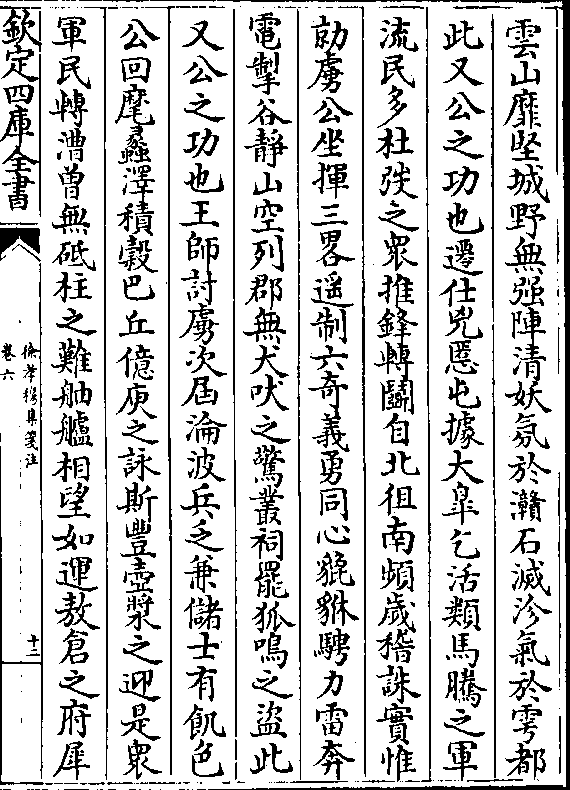 雲山靡堅城野無强陣清妖氛於灨石滅沴氣於雩都
此又公之功也遷仕兇慝屯據大臯乞活類馬騰之軍
流民多杜弢之衆推鋒轉鬭自北徂南頻歲稽誅實惟
勍虜公坐揮三畧遥制六奇義勇同心貔貅騁力雷奔
電擊谷静山空列郡無犬吠之驚叢祠罷狐鳴之盜此
又公之功也王師討虜次屆淪波兵乏兼儲士有飢色
公回麾蠡澤積糓巴丘億庾之詠斯豐壺漿之迎是衆
軍民轉漕曽無砥柱之難舳艫相望如運敖倉之府犀
欽定四庫全書
徐孝穆集箋注
卷六
十二